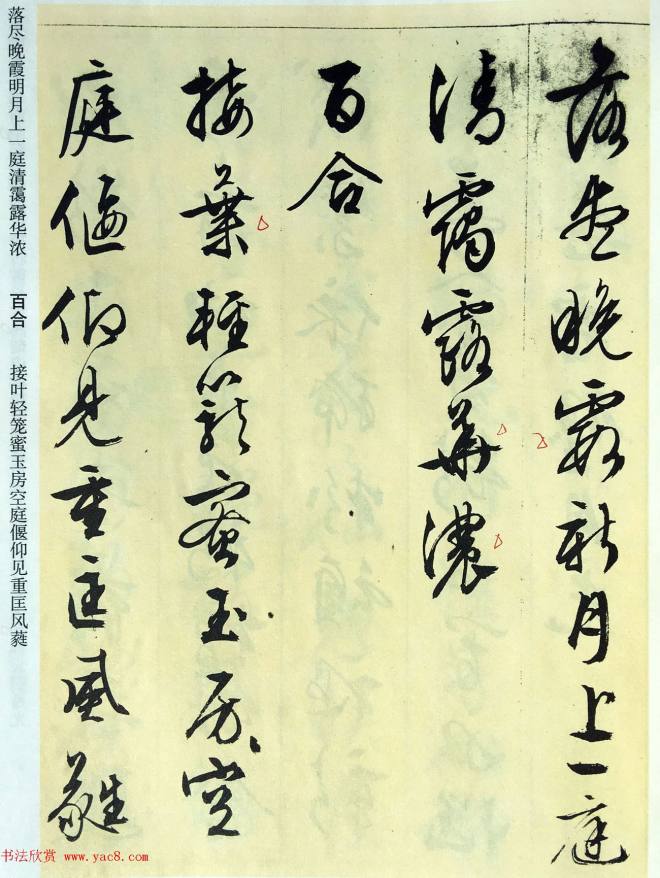 落盡晚霞新月上一庭
清靄露華濃
百合
接葉輕籠蜜玉房空
庭偃仰見重匡風蕤
落尽晚霞明月上一庭清霭露华浓 百合 接叶轻笼蜜玉房空庭偃仰见重匡风蕤
书法欣赏 www.yac8.com